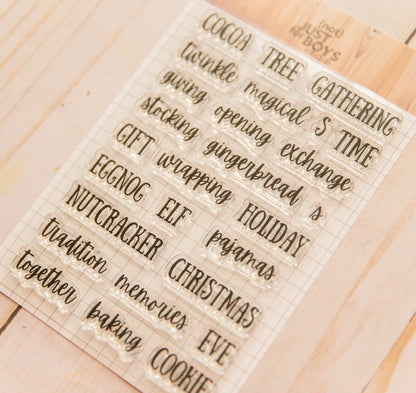 (not) JUST
for BOYS
COCOA TREE GATHERING
twinkle magical S TIME
giving opening exchange
stocking gingerbread s
GIFT wrapping HOLIDAY
EGGNOG ELF pajamas
NUTCRACKER CHRISTMAS
tradition memories EVE
together baking COOKIE